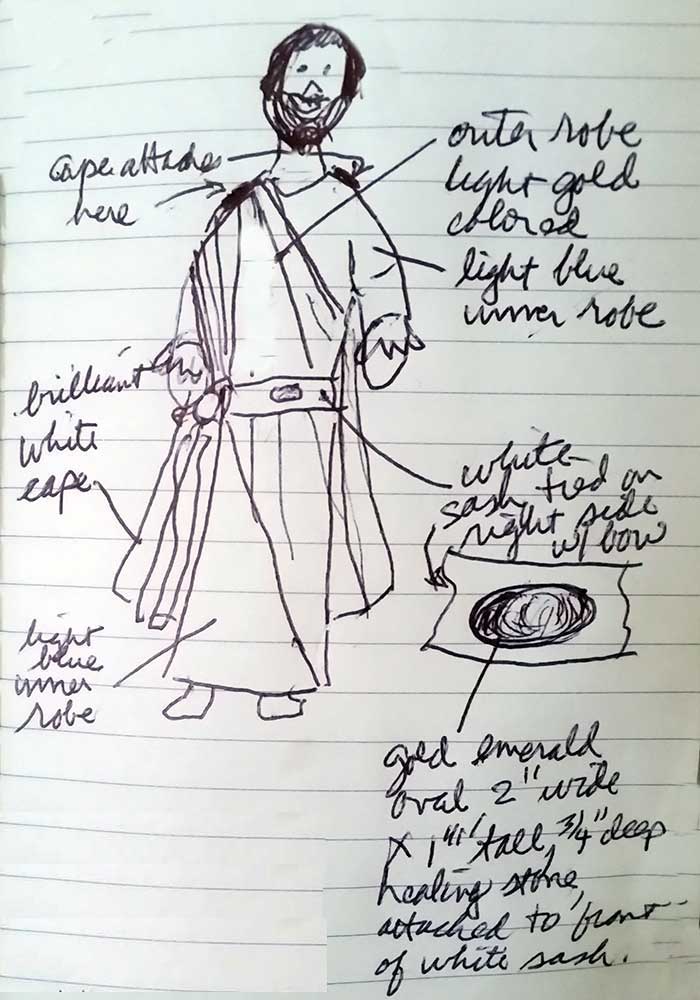 cape attaches
here
outer robe
light gold
colored
light blue
inner robe
brilliant
white
cape
white
sash tied on
right side
w/ bow
light
blue
inner
robe
gold emerald
oval 2" wide
x 1"" tall, 3/4" deep
healing stone,
attached to front
of white sash.